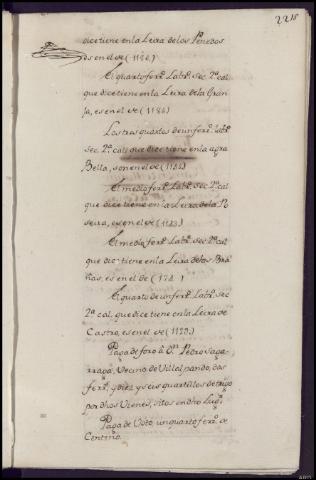 221
dice tiene en la Leira de los Penedos
es en el de (1186)
El quarto ferº. Labrº. sec. 2ª cal.
que dice tiene en la Leira de la Gran
ja, es en el de (1186)
Las tres quartas de un ferº. Labrº.
sec. 2ª cal. que dice tiene en la agra
Bella, son en el de
El medio ferº. Labrº. sec. 2ª cal
que dice tiene en la Leira de la Po
seira, es en el de (1183)
El medio ferº. Labrº. sec. 2ª cal
que dice tiene en la Leira de las Bra
ñas, es en el de
El quarto de un ferº. Labrº. sec
2ª cal. que dice tiene en la Leira de
Castro, es en el de
Paga de foro â Dn. Pedro
Vecino de Villalpando, dos
ferº. y diez y seis quartillos de trigo
por dhos Vienes, sitos en dho Lugr.
Paga de Voto un quarto ferº. de
Centeno.